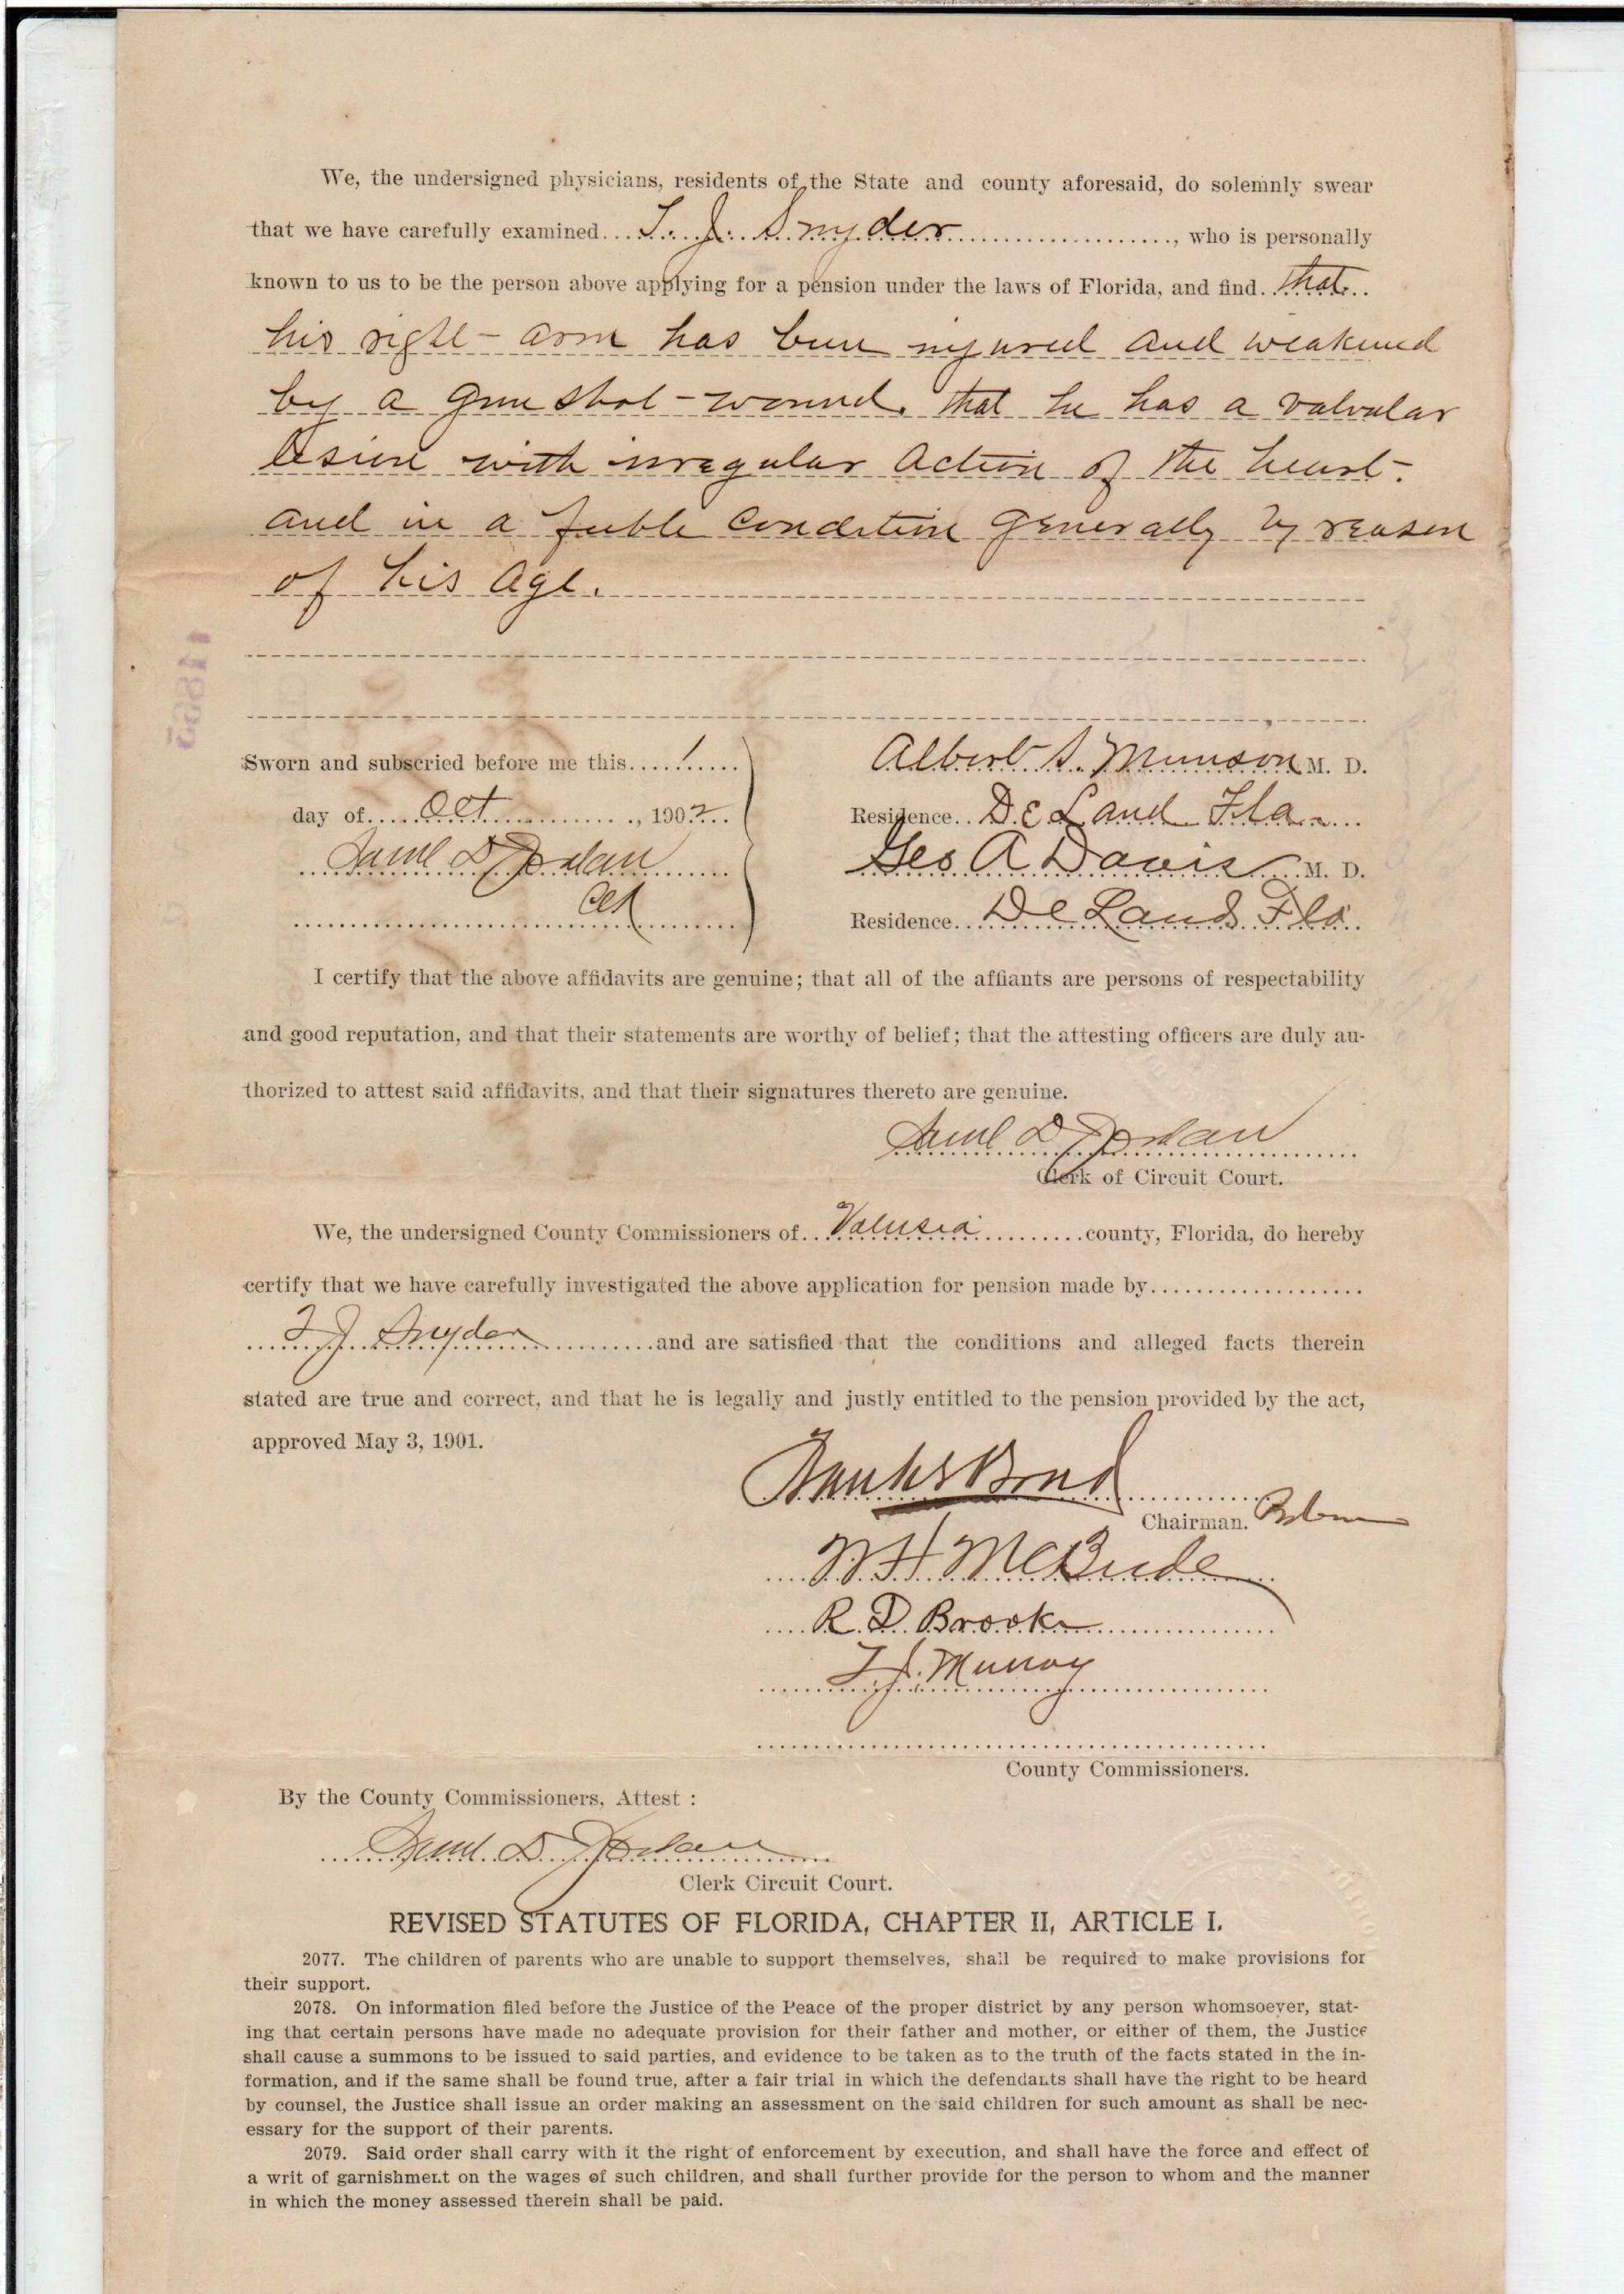 We, the undersigned physicians, residents of the State and county aforesaid, do solemnly swear
that we have carefully examined....T. J. Snyder......................, who is personally
known to us to be the person above applying for a pension under the laws of Florida, and find. that..
his right-arm has been injured and weakened
by a gun shot-wound. that he has a valvular
lesion with irregular action of the heart-
and in a feeble condition generally by reason
of his age.
11865
Sworn and subscried before me this.....1.....
Albert S. Munson M. D.
day of.....Oct..............., 1902...
Residence.. DeLand Fla....
Saml D Jordan
Geo A Davis M. D.
Clk
Residence.. De Land Fla.
I certify that the above affidavits are genuine; that all of the affiants are persons of respectability
and good reputation, and that their statements are worthy of belief; that the attesting officers are duly au-
thorized to attest said affidavits, and that their signatures thereto are genuine.
Saml D Jordan
Clerk of Circuit Court.
We, the undersigned County Commissioners of...Volusia..........county, Florida, do hereby
certify that we have carefully investigated the above application for pension made by...................
....T J Snyder............and are satisfied that the conditions and alleged facts therein
stated are true and correct, and that he is legally and justly entitled to the pension provided by the act,
approved May 3, 1901.
Bond
Chairman.
McBride
R. D. Brooke
J. Murray
County Commissioners.
By the County Commissioners, Attest :
Saml. D. Jordan
Clerk Circuit Court.
REVISED STATUTES OF FLORIDA, CHAPTER II, ARTICLE I.
2077. The children of parents who are unable to support themselves, shall be required to make provisions for
their support.
2078. On information filed before the Justice of the Peace of the proper district by any person whomsoever, stat-
ing that certain persons have made no adequate provision for their father and mother, or either of them, the Justice
shall cause a summons to be issued to said parties, and evidence to be taken as to the truth of the facts stated in the in-
formation, and if the same shall be found true, after a fair trial in which the defendants shall have the right to be heard
by counsel, the Justice shall issue an order making an assessment on the said children for such amount as shall be nec-
essary for the support of their parents.
2079. Said order shall carry with it the right of enforcement by execution, and shall have the force and effect of
a writ of garnishment on the wages of such children, and shall further provide for the person to whom and the manner
in which the money assessed therein shall be paid.